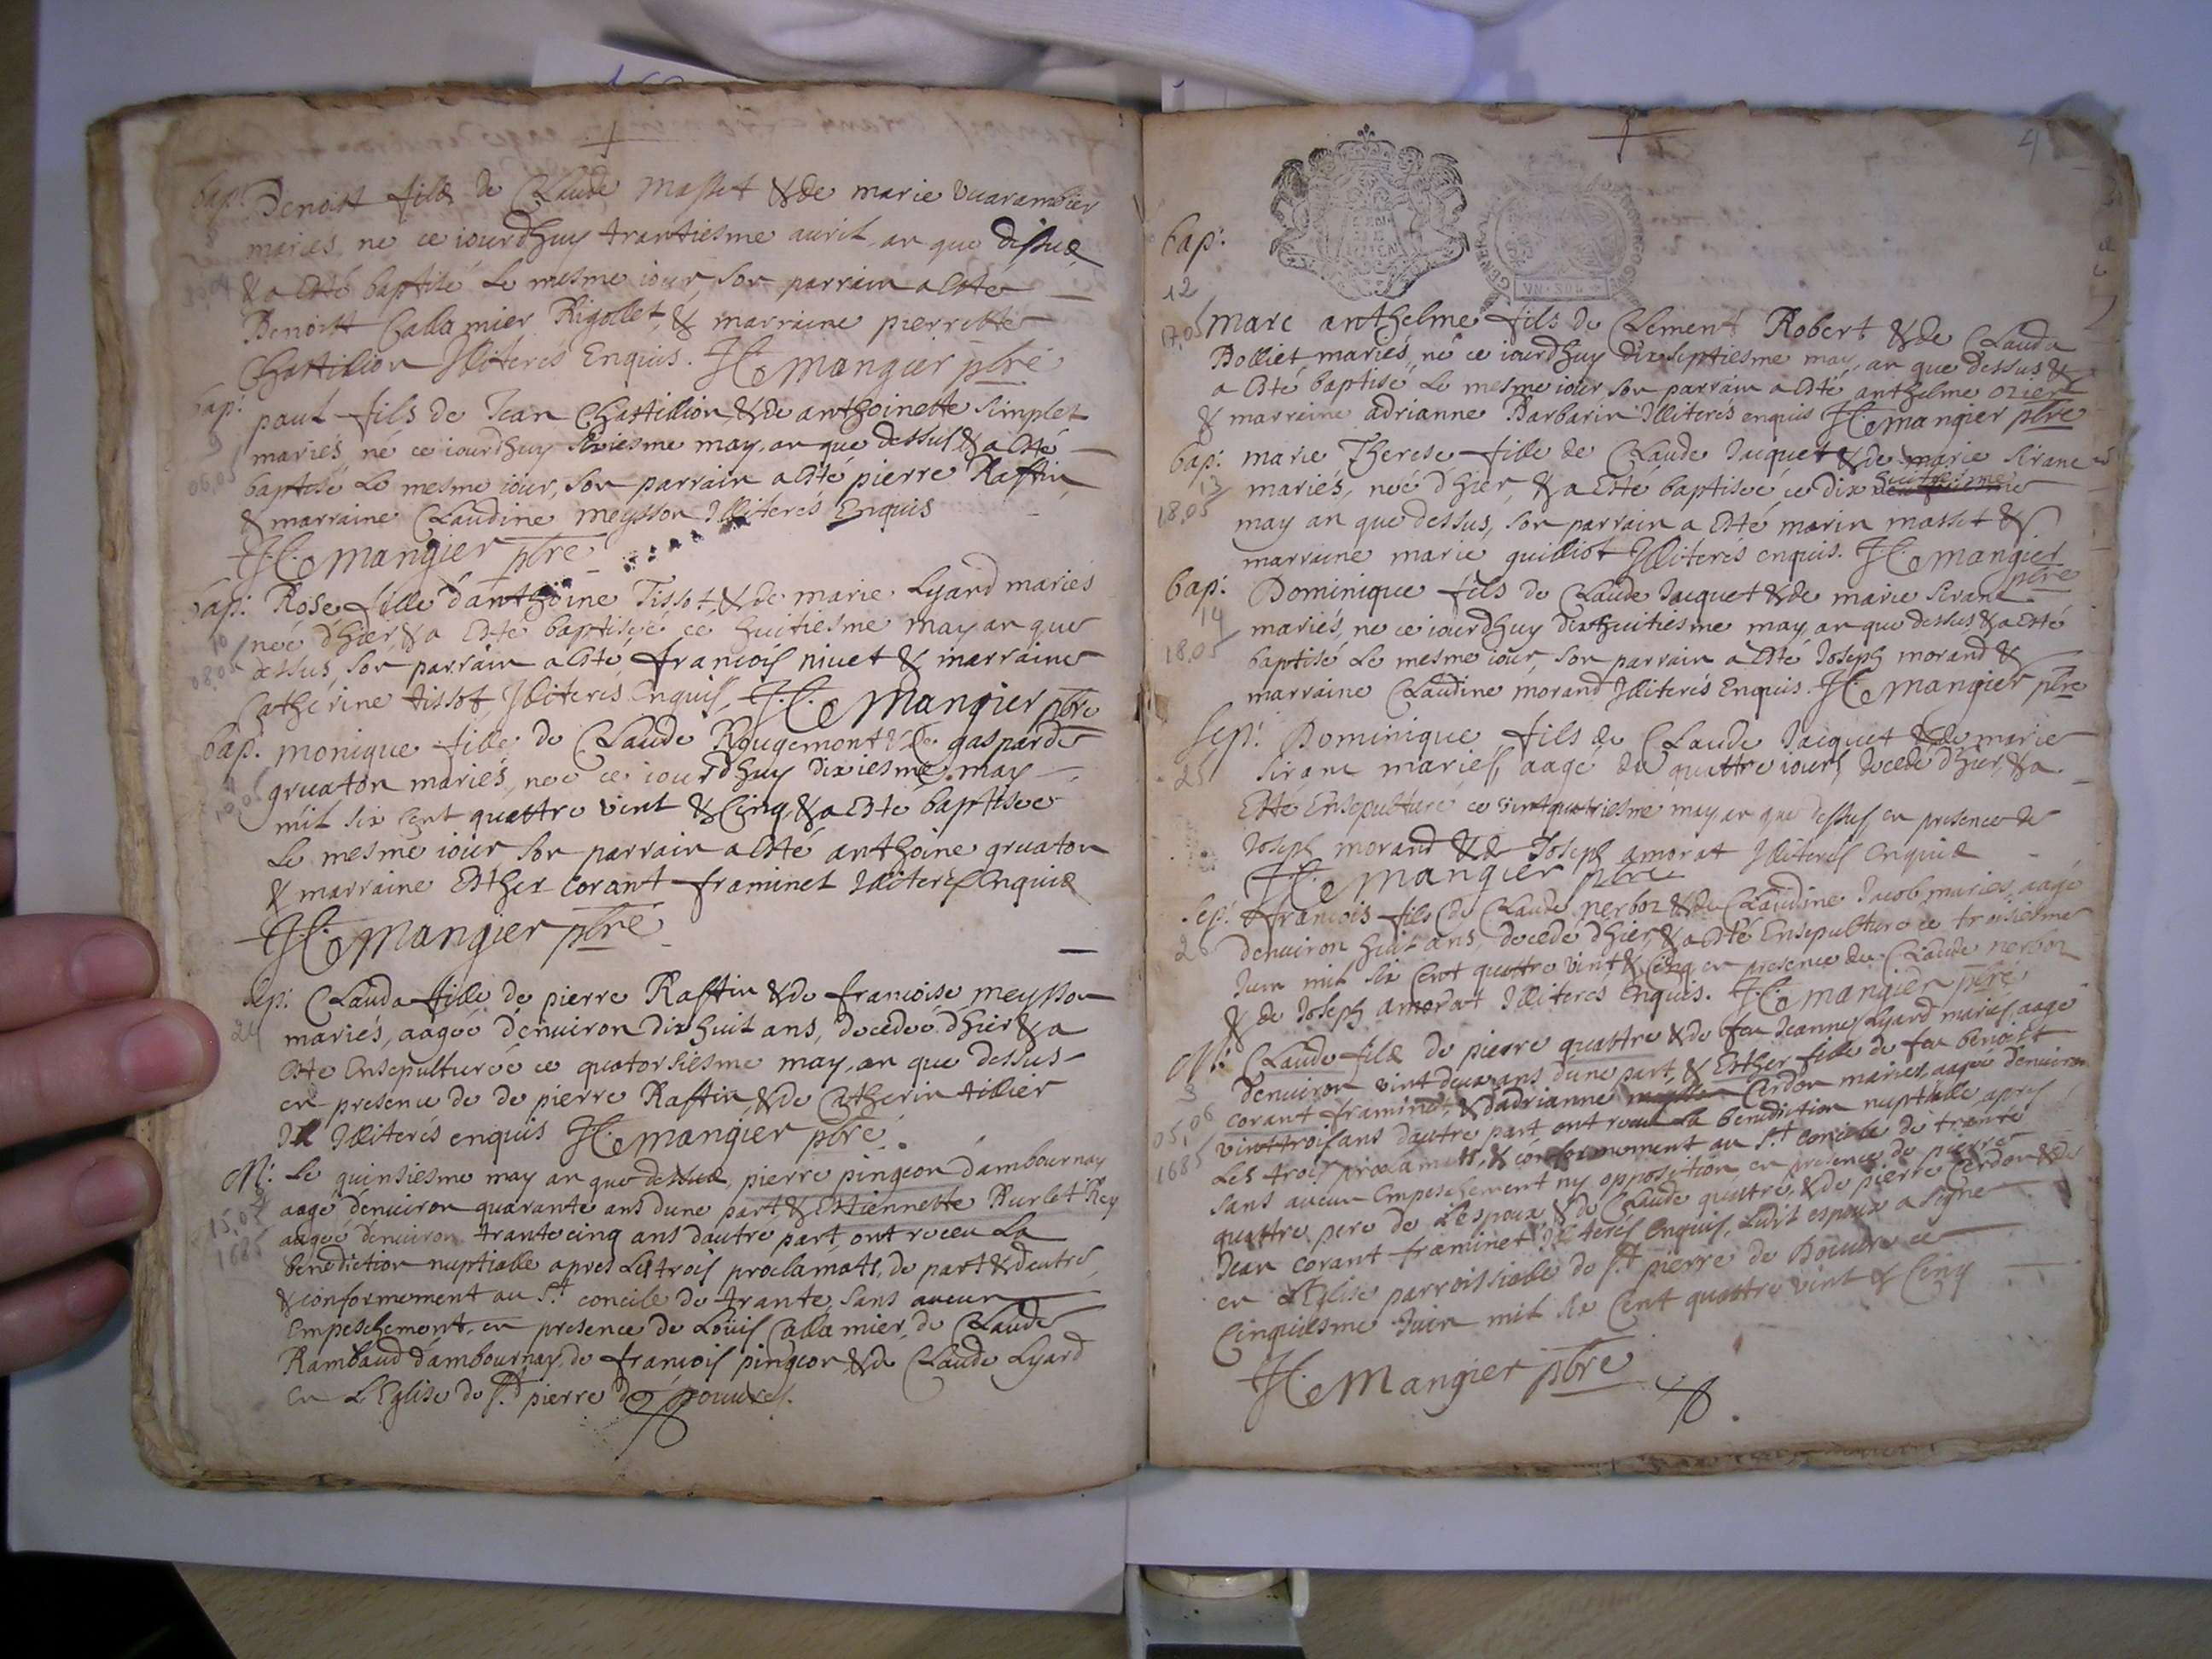 bap:
Benoist filz de Claude Masset & de marie vuarambier
mariés, né ce iourdhuy trantiesme auril an que dessus
& a esté baptisé le mesme iour, son parrain a esté
Benoist Callamier Rigollet, & marraine pierrette
Chastillion Illiterés Enquis. J C Mangier pbre
bap:
9
06,05
paul fils de Jean Chastillion, & de anthoinette simplet
mariés, né ce iourdhuy sixiesme may, an que dessus & a esté
baptisé le mesme iour, son parrain a esté pierre Raffin,
& marraine Claudine meysson Illiterés Enquis
J C Mangier pbre
bap:
10
08,05
Rose fille d'anthoine Tissot, & de marie Lyard mariés
neé d'hier, & a esté baptiseé ce huitiesme may an que
dessus, son parrain a esté francois niuet & marraine
Catherine tissot, Illiterés Enquis, J C Mangier pbre
bap:
monique fille de Claude Rougemont & de gasparde
gruaton mariés, neé ce iourdhuy dixiesme may
mil six cent quattre vint & Cinq, & a esté baptiseé
le mesme iour, son parrain a esté anthoine gruaton
& marraine Esther Corant framinet Illiterés Enquis
J C Mangier pbre
Sep:
24
Clauda fille de pierre Raffin & de francoise meysson
mariés, aageé d'enuiron dix huit ans, decedeé d'hier & a
esté Ensepultureé ce quatorsiesme may, an que dessus
en presence de de pierre Raffin, & de Catherin tillier
Illiterés enquis J C Mangier pbre
M:
15,05
1685
Le quinsiesme may an que dessus, pierre pingeon d'ambournay
aagé d'enuiron quarante ans dune part, & Estiennette Burlet Rey
aageé d'enuiron trante cinq ans dautre part, ont receu La
benediction nuptialle apres Les trois proclamats, de part & dautre,
& conformement au St concile de trante, sans aucun
Empeschement, en presence de Loüis Callamier, de Claude
Rambaud d'ambournay, de francois pingeon & de Claude Lyard
en L'Eglise de St pierre de
4
GENER
VN·SOL
bap:
12
17,05
Marc anthelme fils de Clement Robert & de Clauda
Bolliet, mariés, né ce iourdhuy dix septiesme may, an que dessus &
a esté baptisé, Le mesme iour son parrain a esté anthelme ozier
& marraine adrianne Barbarin Illiterés enquis J C Mangier pbre
bap:
13
18,05
marie Therese fille de Claude Jacquet & de marie sirane
mariés, neé d'hier, & a esté baptiseé ce dix huitiesme
may an que dessus, son parrain a esté marin masset &
marraine marie guilliot Illiterés enquis. J C Mangier
pbre
bap:
14
18,05
Dominique fils de Claude Jacquet & de marie sirane
mariés, né ce iourdhuy dixhuitiesme may, an que dessus & a esté
baptisé Le mesme iour, son parrain a esté Joseph morand &
marraine Claudine morand Illiterés Enquis. J C Mangier pbre
Sep:
25
Dominique fils de Claude Jacquet & de marie
sirane mariés, aagé de quattre iours, decedé d'hier, & a
Esté Ensepulturé ce vintquatriesme may an que dessus, en presence de
Joseph morand & de Joseph amorat Illiterés Enquis
J C Mangier pbre
Sep:
26
francois fils de Claude nerbon & de Claudine Jacob mariés, aagé
denuiron huit ans, decedé d'hier, & a esté Ensepulturé ce troisiesme
Juin mil six Cent quattre vint & Cinq en presence de Claude nerbon
& de Joseph amorat Illiterés Enquis. J C Mangier pbre
M:
3
05,06
1685
Claude filz de pierre quattre & de feu Jeanne Lyard mariés, aagé
denuiron vint deux ans dune part, & Esther fille de feu benoist
corant framinet, & d'adrianne Cerdon mariés, aageé denuiron
vint trois ans dautre part ont receu La benediction nuptialle apres
Les trois proclamats, & conformement au St concile de trante
sans aucun Empeschement ny opposition en presence de pierre
quattre pere de L'espoux & de Claude quattre, & de pierre Cerdon & de
Jean Corant framinet Illiterés Enquis, Ledit espoux a signé
en L'Eglise parroissialle de St pierre de Douures ce
Cinquiesme Juin mil six Cent quattre vint & Cinq
J C Mangier pbre